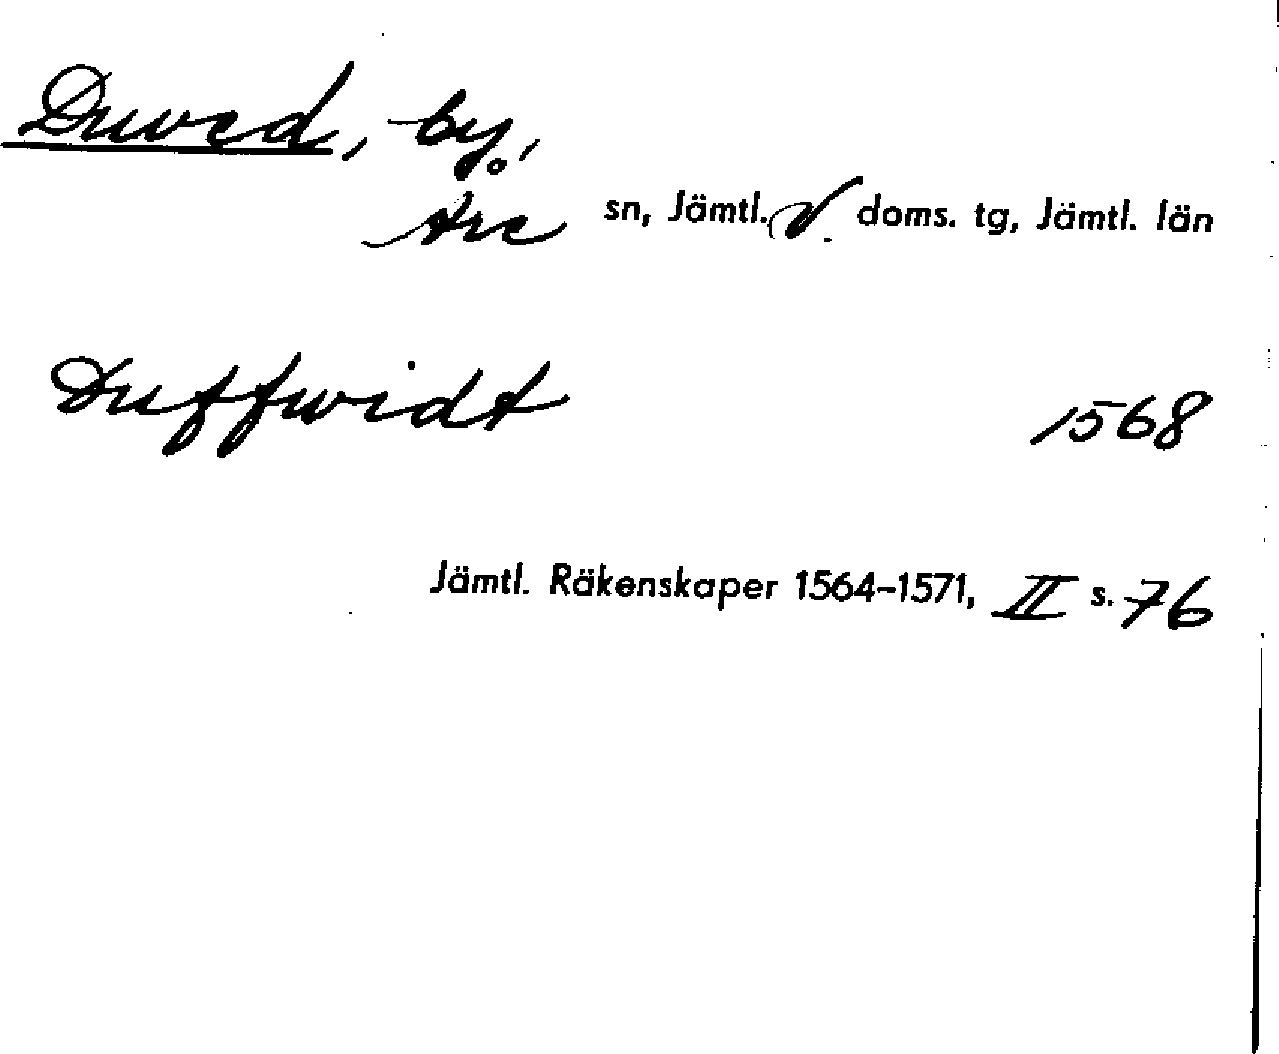 Duved, by,
Åre sn, Jämtl. V. doms. tg, Jämtl. län
Duffwidt 1568
Jämtl. Räkenskaper 1564-1571, II s. 76